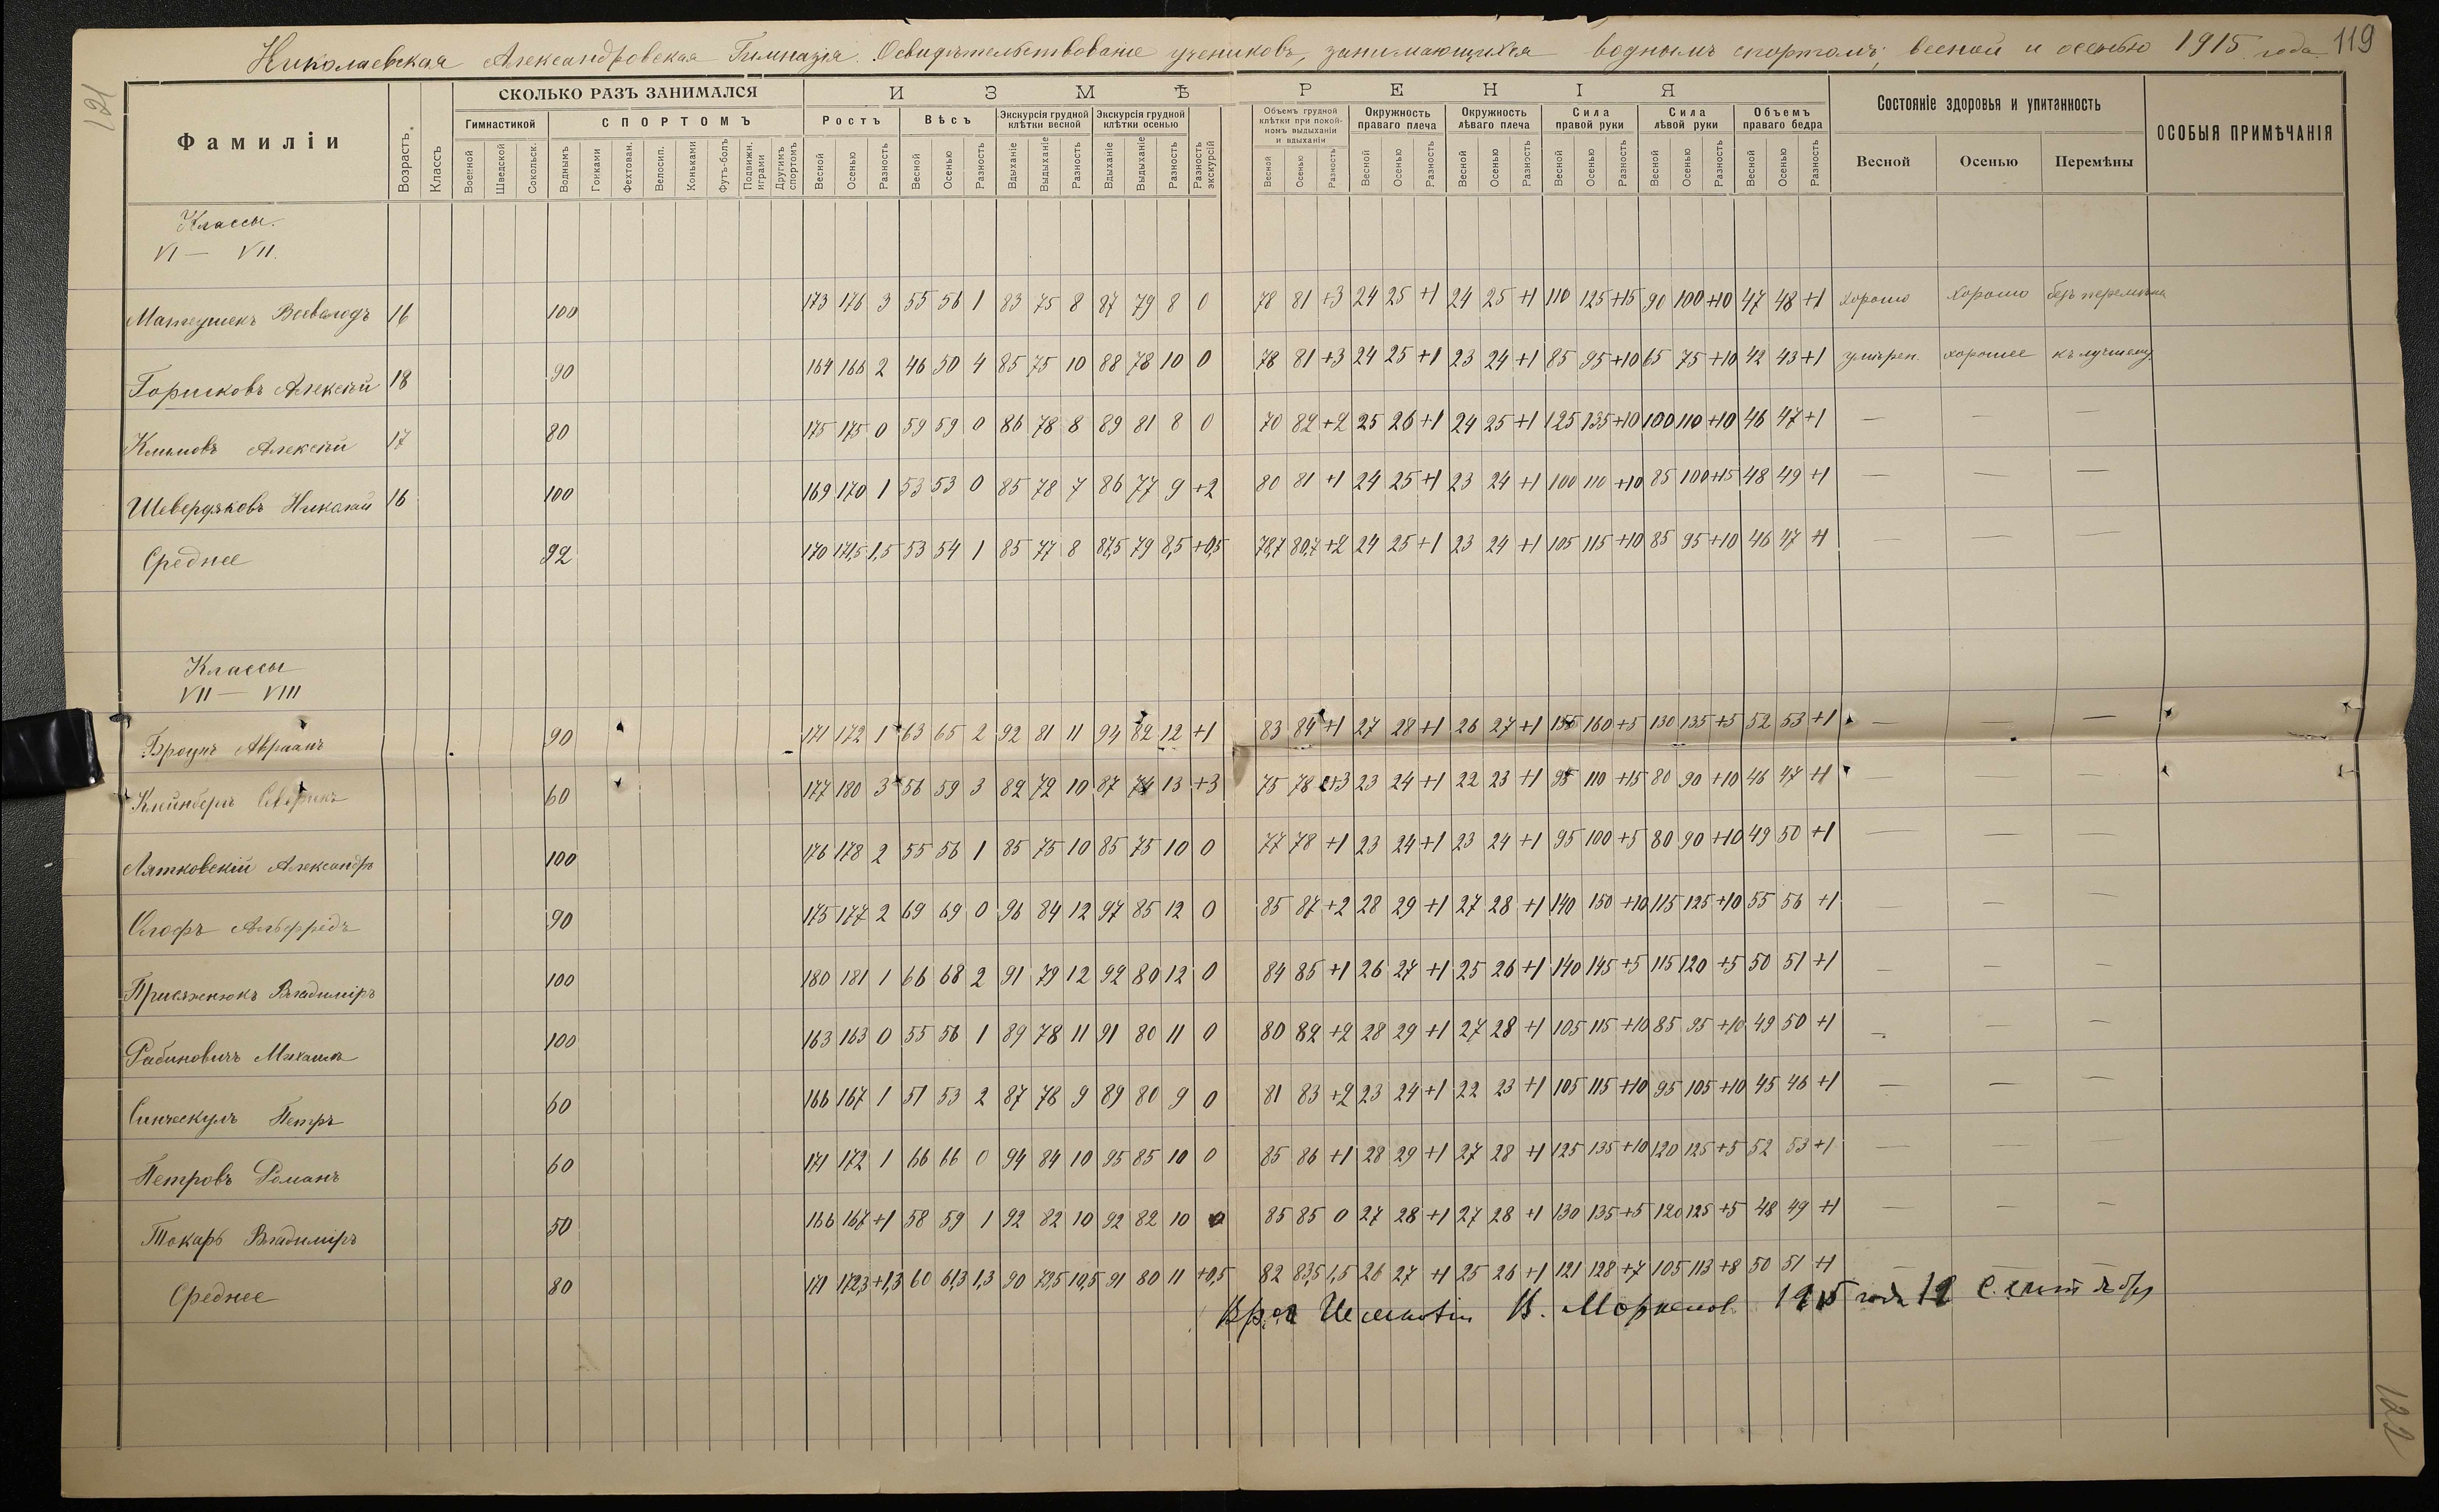 119
Николаевская Александровская Гимназія. Освидѣтельствованіе учениковъ, занимающихся воднымъ спортомъ, весной и осенью 1915 года
121
Фамиліи Возрастъ. Классъ СКОЛЬКО РАЗЪ ЗАНИМАЛСЯ И З М Ѣ Р Е Н І Я Состояніе здоровья и упитанность ОСОБЫЯ ПРИМѢЧАНІЯ
Гимнастикой СПОРТОМЪ Ростъ Вѣсъ Экскурсія грудной клѣтки весной Экскурсія грудной клѣтки осенью Разность экскурсій Объемъ грудной клѣтки при покойномъ выдыханіи и вдыханіи Окружность праваго плеча Окружность лѣваго плеча Сила правой руки Сила лѣвой руки Объемъ праваго бедра Весной Осенью Перемѣны
Военной Шведской Сокольск. Воднымъ Гонками Фехтован. Велосип. Коньками Футъ-болъ Подвижн. играми Другимъ спортомъ Весной Осенью Разность Весной Осенью Разность Вдыханіе Выдыханіе Разность Вдыханіе Выдыханіе Разность Весной Осенью Разность Весной Осенью Разность Весной Осенью Разность Весной Осенью Разность Весной Осенью Разность Весной Осенью Разность
Классы.
VI — VII.
Матушекъ Всеволодъ 16 100 173 176 3 55 56 1 83 75 8 87 79 8 0 78 81 +3 24 25 +1 24 25 +1 110 125 +15 90 100 +10 47 48 +1 хорошо хорошо безъ перемѣны
Горшковъ Алексѣй 18 90 164 166 2 46 50 4 85 75 10 88 78 10 0 78 81 +3 24 25 +1 23 24 +1 85 95 +10 65 75 +10 42 43 +1 умѣрен. хорошее къ лучшему
Климовъ Алексѣй 17 80 175 175 0 59 59 0 86 78 8 89 81 8 0 70 82 +2 25 26 +1 24 25 +1 125 135 +10 100 110 +10 46 47 +1 — — —
Шевердяковъ Николай 16 100 169 170 1 53 53 0 85 78 7 86 77 9 +2 80 81 +1 24 25 +1 23 24 +1 100 110 +10 85 100 +15 48 49 +1 — — —
Среднее 92 170 171,5 1,5 53 54 1 85 77 8 87,5 79 8,5 +0,5 78,7 80,7 +2 24 25 +1 23 24 +1 105 115 +10 85 95 +10 46 47 +1 — — —
Классы
VII — VIII
Броунъ Авраамъ 90 171 172 1 63 65 2 92 81 11 94 82 12 +1 83 84 +1 27 28 +1 26 27 +1 155 160 +5 130 135 +5 52 53 +1 — — —
Клейнберъ 60 177 180 3 56 59 3 82 72 10 87 74 13 +3 75 78 +3 23 24 +1 22 23 +1 95 110 +15 80 90 +10 46 47 +1 — — —
Лятковскій Александръ 100 176 178 2 55 56 1 85 75 10 85 75 10 0 77 78 +1 23 24 +1 23 24 +1 95 100 +5 80 90 +10 49 50 +1 — — —
Олофъ Альфредъ 90 175 177 2 69 69 0 96 84 12 97 85 12 0 85 87 +2 28 29 +1 27 28 +1 140 150 +10 115 125 +10 55 56 +1 — — —
Присяжнюкъ Владиміръ 100 180 181 1 66 68 2 91 79 12 92 80 12 0 84 85 +1 26 27 +1 25 26 +1 140 145 +5 115 120 +5 50 51 +1 — — —
Рабиновичъ Михаилъ 100 163 163 0 55 56 1 89 78 11 91 80 11 0 80 82 +2 28 29 +1 27 28 +1 105 115 +10 85 95 +10 49 50 +1 — — —
Петръ 60 166 167 1 51 53 2 87 78 9 89 80 9 0 81 83 +2 23 24 +1 22 23 +1 105 115 +10 95 105 +10 45 46 +1 — — —
Петровъ Романъ 60 171 172 1 66 66 0 94 84 10 95 85 10 0 85 86 +1 28 29 +1 27 28 +1 125 135 +10 120 125 +5 52 53 +1 — — —
Токарь Владиміръ 50 166 167 +1 58 59 1 92 82 10 92 82 10 0 85 85 0 27 28 +1 27 28 +1 130 135 +5 120 125 +5 48 49 +1 — — —
Среднее 80 171 172,3 +1,3 60 61,3 1,3 90 79,5 10,5 91 80 11 +0,5 82 83,5 1,5 26 27 +1 25 26 +1 121 128 +7 105 113 +8 50 51 +1 — — —
Врач Гимназіи 1915 года 12 Сентября
122